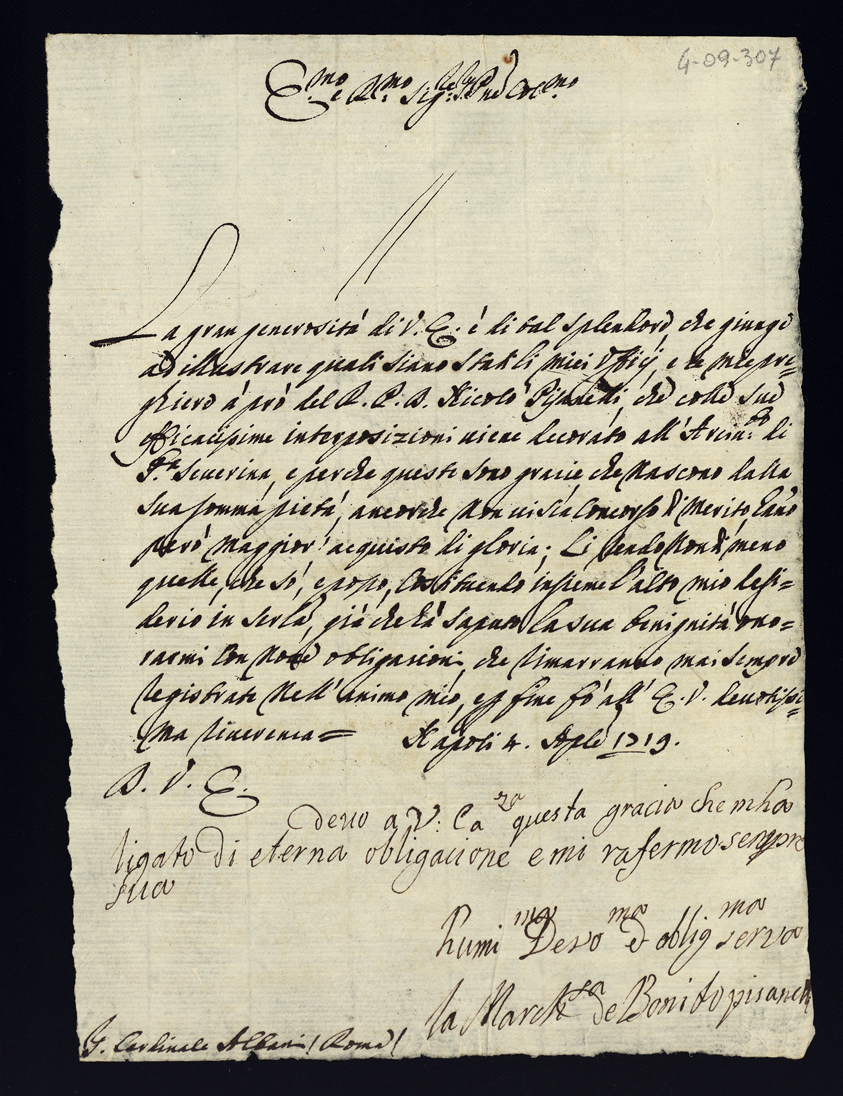 4-09-307
E.mo e R.mo Sig.re Sig.re P.ne Col.mo
La gran generosità di V. E. è di tal splendore, che giunge
ad illustrare quali siano stati li miei Officj, e le mie pre=
ghiere à prò del R. P. D. Nicolò Pisanelli, che colle sue
efficacissime interposizioni viene decorato all' Arciv.do di
S.ta Severina, e perche queste sono gracie che nascono dalla
sua somma pietà, ancorche non vi sia concorso di merito
però maggior' acquisto di gloria; Li rendo non di meno
quelle, che sò, e posso, costituendo insieme l'alto mio desi=
derio in serla, già che hà saputo la sua benignità ono=
rarmi con nove obligacioni, che rimarranno mai sempre
registrate nell' animo mio, e per fine fò all' E. V. devotissi=
ma riverenza= Napoli 4. Aple 1719.
D. V. E.
devo a V: Ea questa gracia che mha
ligato di eterna obligacione e mi rafermo sempre
sua
humi ma Devo ma e oblig ma serva
la March sa de Bonito pisanelli
S. Cardinale Albani (Roma)